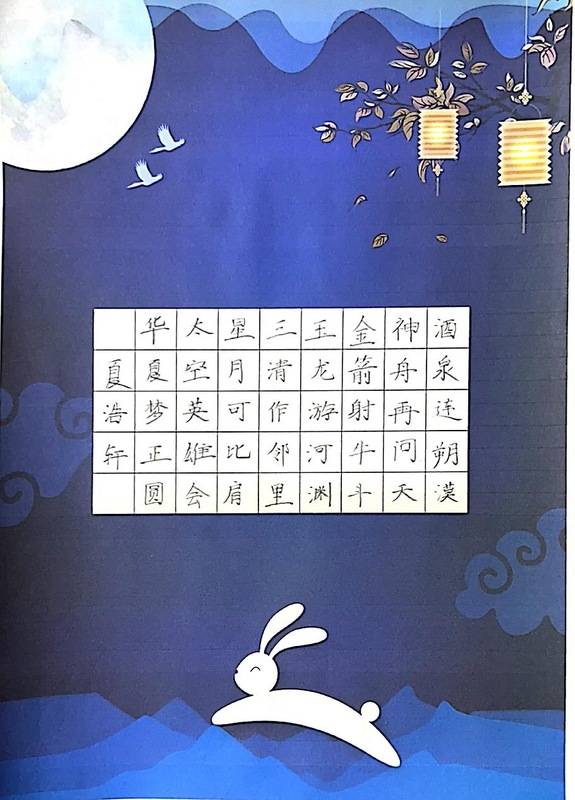 酒泉连朔漠
神舟再问天
金箭射牛斗
玉龙游河渊
三清作邻里
星月可比肩
太空英雄会
华夏梦正圆
夏浩轩